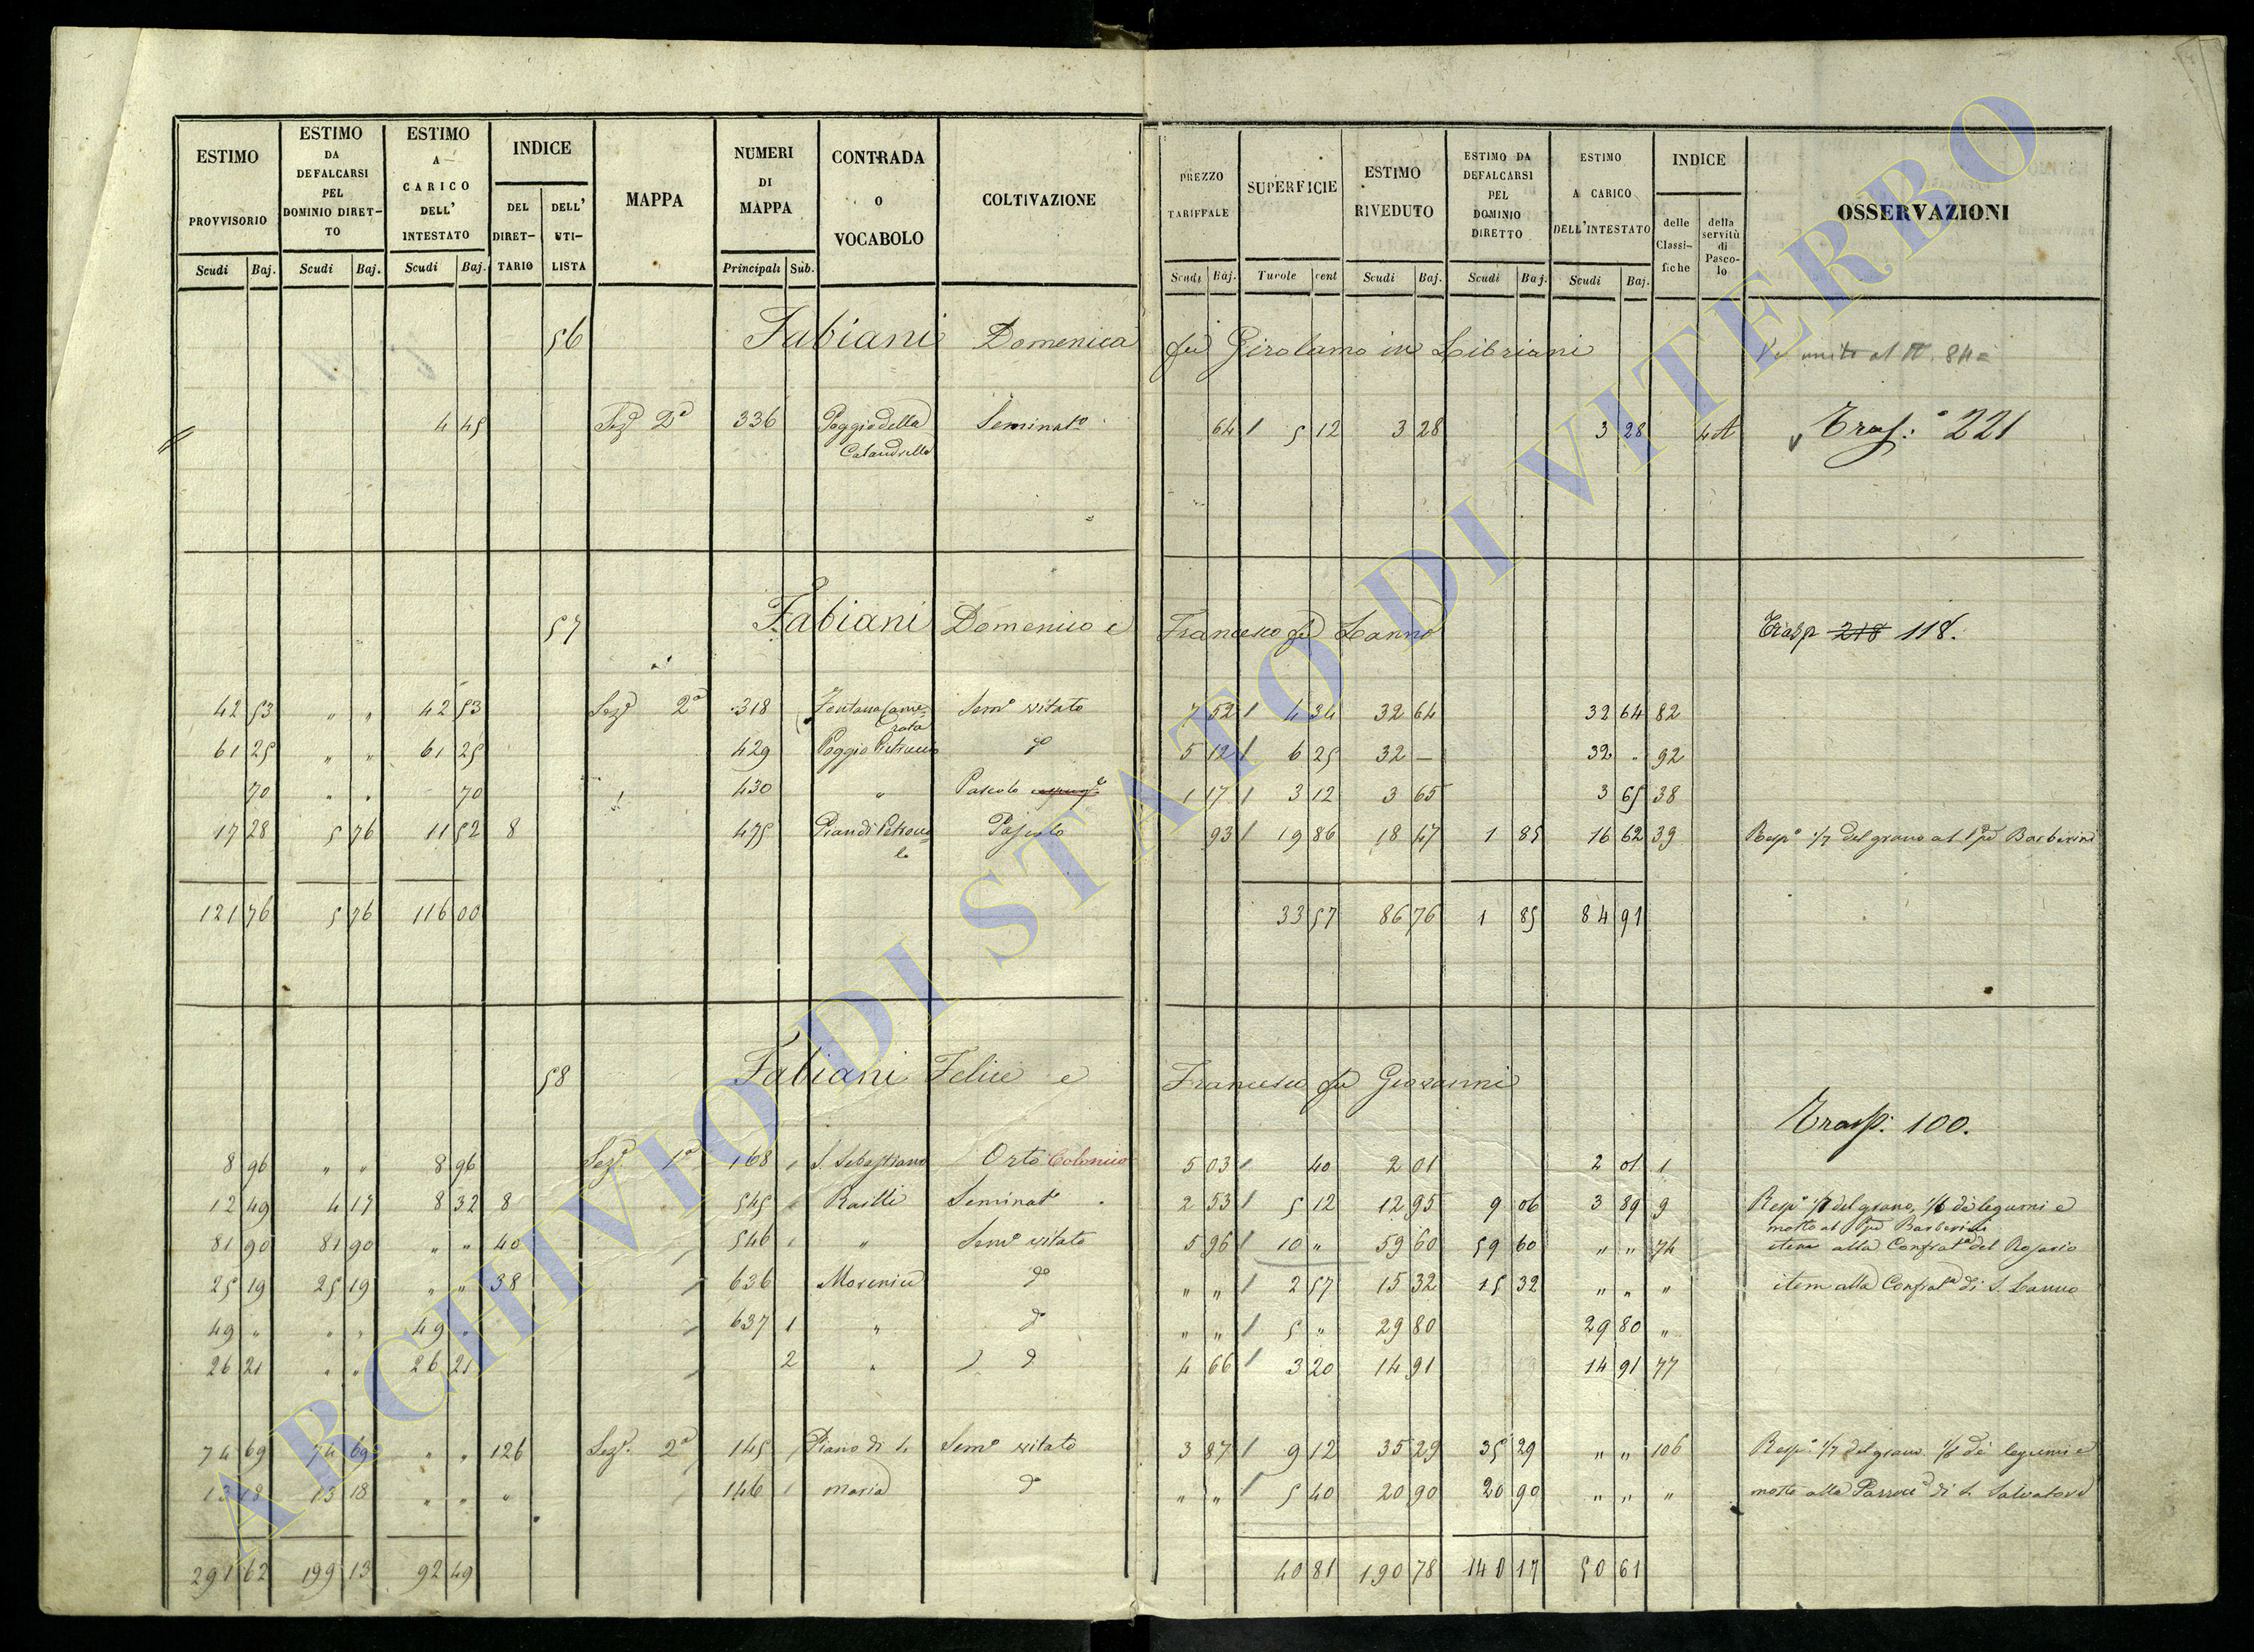 ESTIMO PROVVISORIO Scudi Baj. ESTIMO DA DEFALCARSI PEL DOMINIO DIRETTO Scudi Baj. ESTIMO A CARICO DELL' INTESTATO Scudi Baj. INDICE DEL DIRETTARIO DELL' UTILISTA MAPPA NUMERI DI MAPPA Principali Sub. CONTRADA O VOCABOLO COLTIVAZIONE PREZZO TARIFFALE Scudi Baj. SUPERFICIE Tavole cent ESTIMO RIVEDUTO Scudi Baj. ESTIMO DA DEFALCARSI PEL DOMINIO DIRETTO Scudi Baj. ESTIMO A CARICO DELL'INTESTATO Scudi Baj. INDICE delle Classifiche della servitù di Pascolo OSSERVAZIONI
56 Fabiani Domenica fu Girolamo in Libriani
4 45 Sezᵉ 2ᵃ 336 Poggio della Calandrella Seminatᵒ 64 5 12 3 28 3 28 Trasp. 221
57 Fabiani Domenico e Francesco fu Lanno Trasp 218 118.
42 53 " " 42 53 Sezᵉ 2ᵃ 318 Fontana Camerata Semᵒ vitato 7 52 4 34 32 64 32 64 82
61 25 " " 61 25 429 Poggio dᵒ 5 12 6 25 32 — 32 " 92
70 " " 70 430 " Pascolo 1 17 3 12 3 65 3 65 38
17 28 5 76 11 52 8 475 Pian di Pascolo 93 19 86 18 47 1 85 16 62 39 Respᵒ 1/7 del grano al Barberini
121 76 5 76 116 00 33 57 86 76 1 85 84 91
58 Fabiani Felice e Francesco fu Giovanni
Trasp. 100.
8 96 " " 8 96 Sezᵉ 1ᵃ 168 S. Sebastiano Orto Colonico 5 03 40 2 01 2 01 1
12 49 4 17 8 32 8 545 Seminatᵒ 2 53 5 12 12 95 9 06 3 89 9 Respᵒ 1/7 del grano, 1/8 de legumi e mosto al Barberini
81 90 81 90 " " 40 546 " Semᵒ vitato 5 96 10 " 59 60 59 60 " " 74 item alla Confratᵃ del Rosario
25 19 25 19 " " 38 636 dᵒ " " 2 57 15 32 15 32 " " " item alla Confratᵃ di S. Lanno
49 " " " 49 " 637 1 " dᵒ " " 5 " 29 80 29 80 "
26 21 " " 26 21 2 " dᵒ 4 66 3 20 14 91 14 91 77
74 69 74 69 " " 126 Sezᵉ 2ᵃ 145 Piano di S. Semᵒ vitato 3 87 9 12 35 29 35 29 " " 106 Respᵒ 1/7 del grano 1/8 de legumi e
13 18 13 18 " " " 146 Maria dᵒ " " 5 40 20 90 20 90 " " " mosto alla di S. Salvatore
291 62 199 13 92 49 40 81 190 78 140 17 50 61
ARCHIVIO DI STATO DI VITERBO